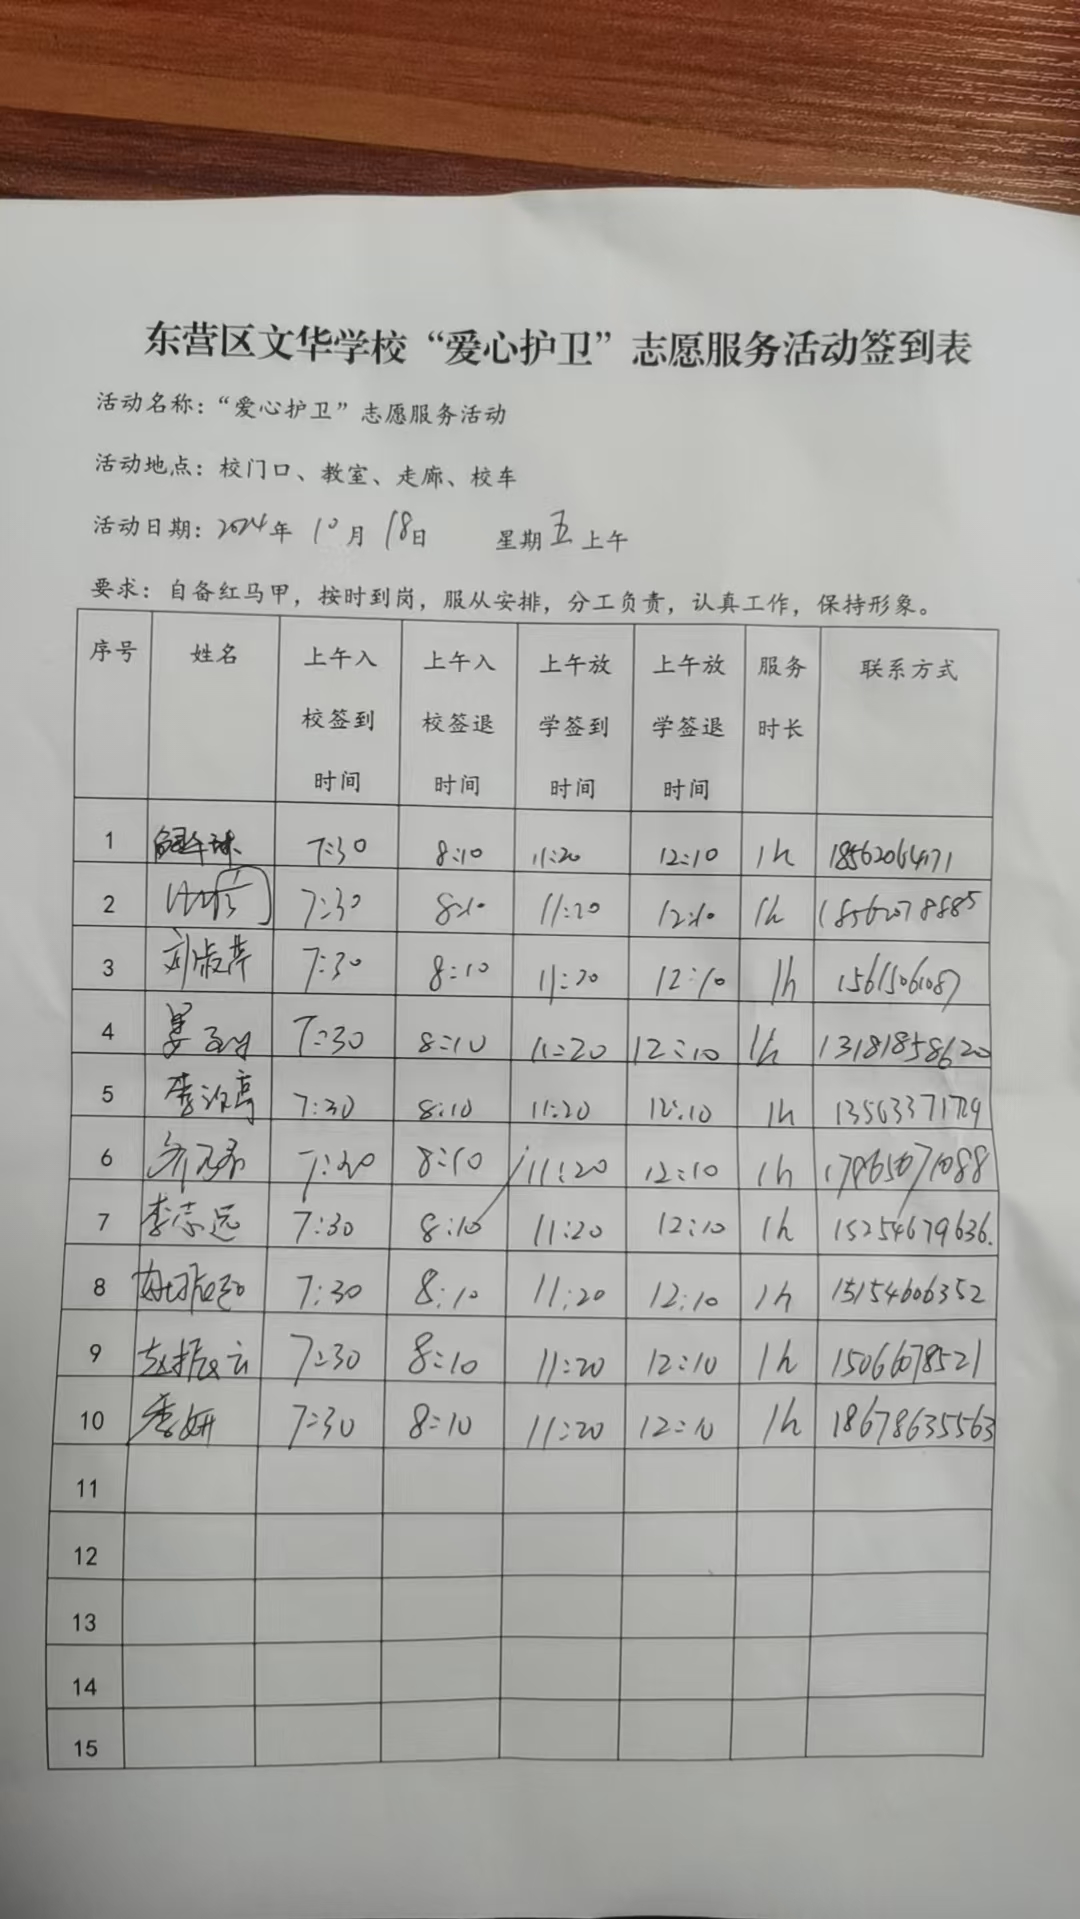 东营区文华学校“爱心护卫”志愿服务活动签到表
活动名称：“爱心护卫”志愿服务活动
活动地点：校门口、教室、走廊、校车
活动日期：2024年 10月 18日 星期五上午
要求：自备红马甲，按时到岗，服从安排，分工负责，认真工作，保持形象。
序号 姓名 上午入校签到时间 上午入校签退时间 上午放学签到时间 上午放学签退时间 服务时长 联系方式
1 7:30 8:10 11:20 12:10 1h
2 7:30 8:10 11:20 12:10 1h 18562078885
3 刘淑萍 7:30 8:10 11:20 12:10 1h 15615061087
4 7:30 8:10 11:20 12:10 1h 13181858620
5 7:30 8:10 11:20 12:10 1h
6 7:30 8:10 11:20 12:10 1h
7 李志远 7:30 8:10 11:20 12:10 1h 15254679636.
8 7:30 8:10 11:20 12:10 1h 15154606352
9 赵振云 7:30 8:10 11:20 12:10 1h 15066078521
10 李妍 7:30 8:10 11:20 12:10 1h 18678635563
11
12
13
14
15